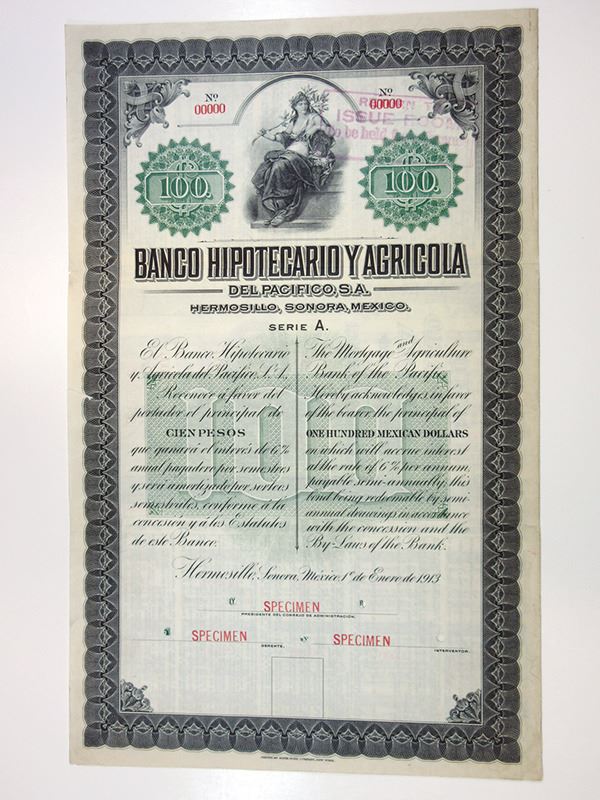 Nº
00000
Nº
00000
ISSUE
to be held
100.
100.
BANCO HIPOTECARIO Y AGRICOLA
DEL PACIFICO, S.A.
HERMOSILLO, SONORA, MEXICO.
SERIE A.
El Banco Hipotecario
y Agrícola del Pacífico, S.A.
Reconoce á favor del
portador el principal de
CIEN PESOS
que ganará el interés de 6%
anual pagadero por semestres
y será amortizado por sorteos
semestrales, conforme á la
concesión y á los Estatutos
de este Banco.
The Mortgage and Agriculture
Bank of the Pacific
Hereby acknowledges in favor
of the bearer the principal of
ONE HUNDRED MEXICAN DOLLARS
on which will accrue interest
at the rate of 6% per annum
payable semi-annually, this
bond being redeemable by semi-
annual drawings in accordance
with the concession and the
By-Laws of the Bank.
Hermosillo, Sonora, México, 1º de Enero de 1913
SPECIMEN
PRESIDENTE DEL CONSEJO DE ADMINISTRACIÓN.
SPECIMEN
GERENTE.
SPECIMEN
INTERVENTOR.